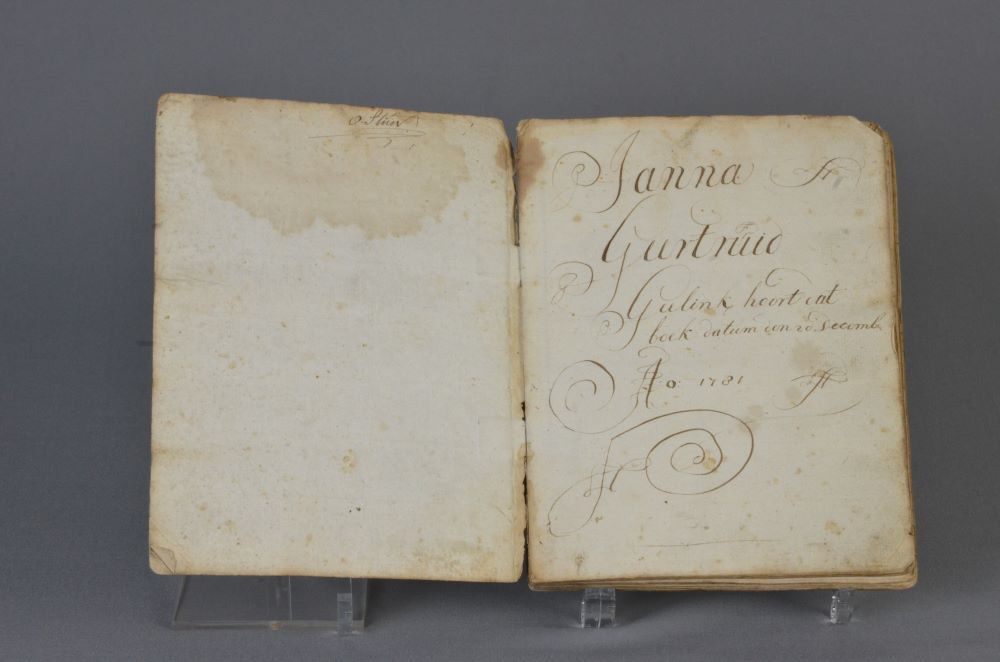 Janna
Gurtruid
Gulink hoort dat
boek datum den 20 Decemb
Ao 1781